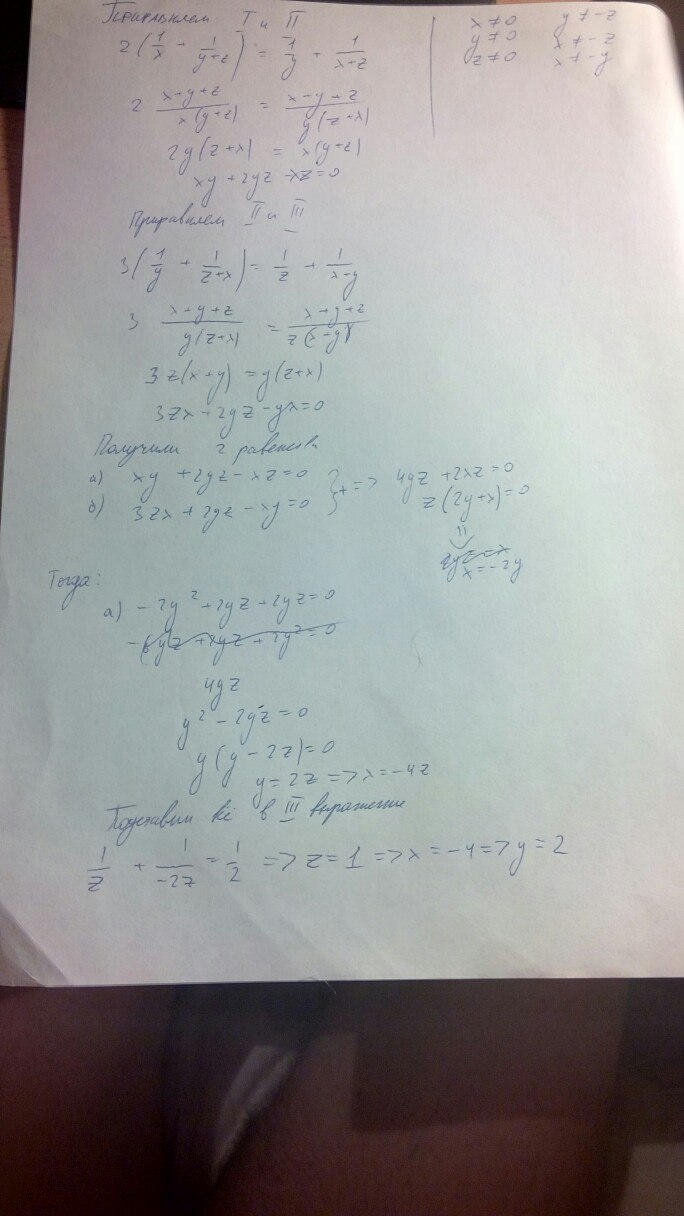 Приравняем I и II
x ≠ 0 y ≠ -z
y ≠ 0 x ≠ -z
z ≠ 0 x ≠ -y
2(1/x + 1/(y+z)) = 1/y + 1/(x+z)
2 (x+y+z)/(x(y+z)) = (x+y+z)/(y(z+x))
2y(z+x) = x(y+z)
xy + 2yz - xz = 0
Приравняем II и III
3(1/y + 1/(z+x)) = 1/z + 1/(x+y)
3 (x+y+z)/(y(z+x)) = (x+y+z)/(z(x+y))
3z(x+y) = y(z+x)
3zx + 2yz - yx = 0
Получили 2 равенства
а) xy + 2yz - xz = 0
б) 3zx + 2yz - xy = 0
} + => 4yz + 2xz = 0
z(2y+x) = 0
x = -2y
Тогда:
а) -2y² + 2yz + 2yz = 0
4yz
y² - 2yz = 0
y(y - 2z) = 0
y = 2z => x = -4z
Подставим всё в III выражение
1/z + 1/(-2z) = 1/2 => z = 1 => x = -4 => y = 2